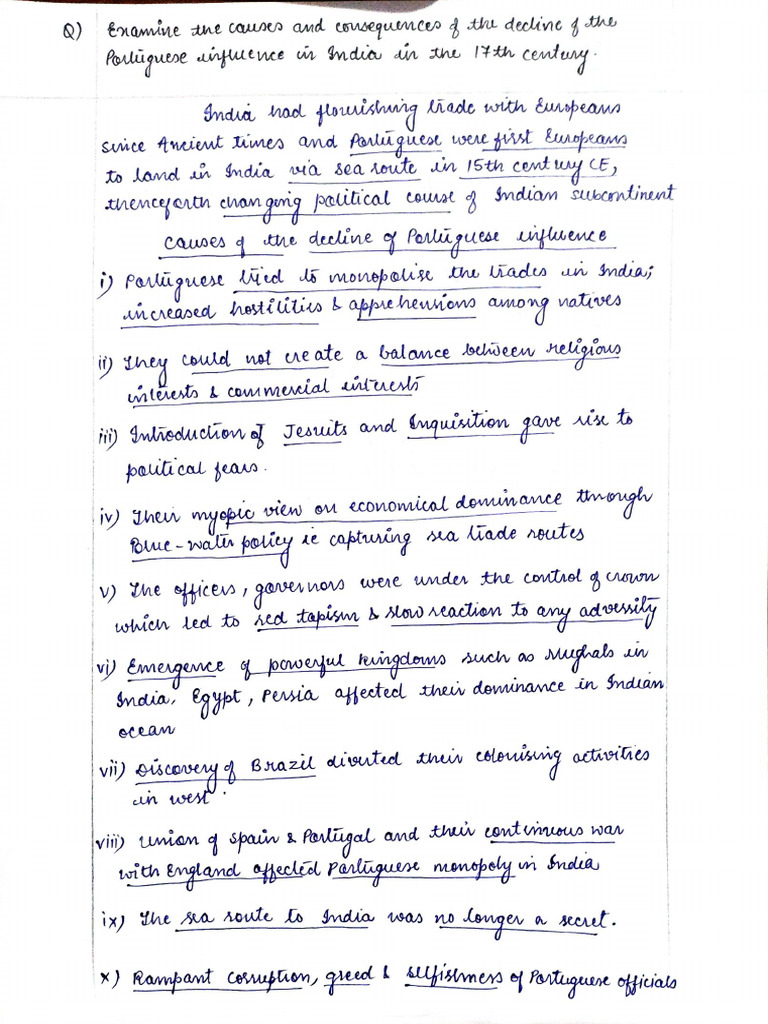 Q) Examine the causes and consequences of the decline of the
Portuguese influence in India in the 17th century.
India had flourishing trade with Europeans
since Ancient times and Portuguese were first Europeans
to land in India via sea route in 15th century CE,
thenceforth changing political course of Indian subcontinent
causes of the decline of Portuguese influence
i) Portuguese tried to monopolise the trades in India;
increased hostilities & apprehensions among natives
ii) They could not create a balance between religious
interests & commercial interests
iii) Introduction of Jesuits and Inquisition gave rise to
political fears.
iv) Their myopic view on economical dominance through
Blue-water policy ie capturing sea trade routes
v) The officers, governors were under the control of crown
which led to red tapism & slow reaction to any adversity
vi) Emergence of powerful kingdoms such as Mughals in
India, Egypt, Persia affected their dominance in Indian
ocean
vii) Discovery of Brazil diverted their colonising activities
in west.
viii) Union of Spain & Portugal and their continuous war
with England affected Portuguese monopoly in India
ix) The sea route to India was no longer a secret.
x) Rampant corruption, greed & selfishness of Portuguese officials